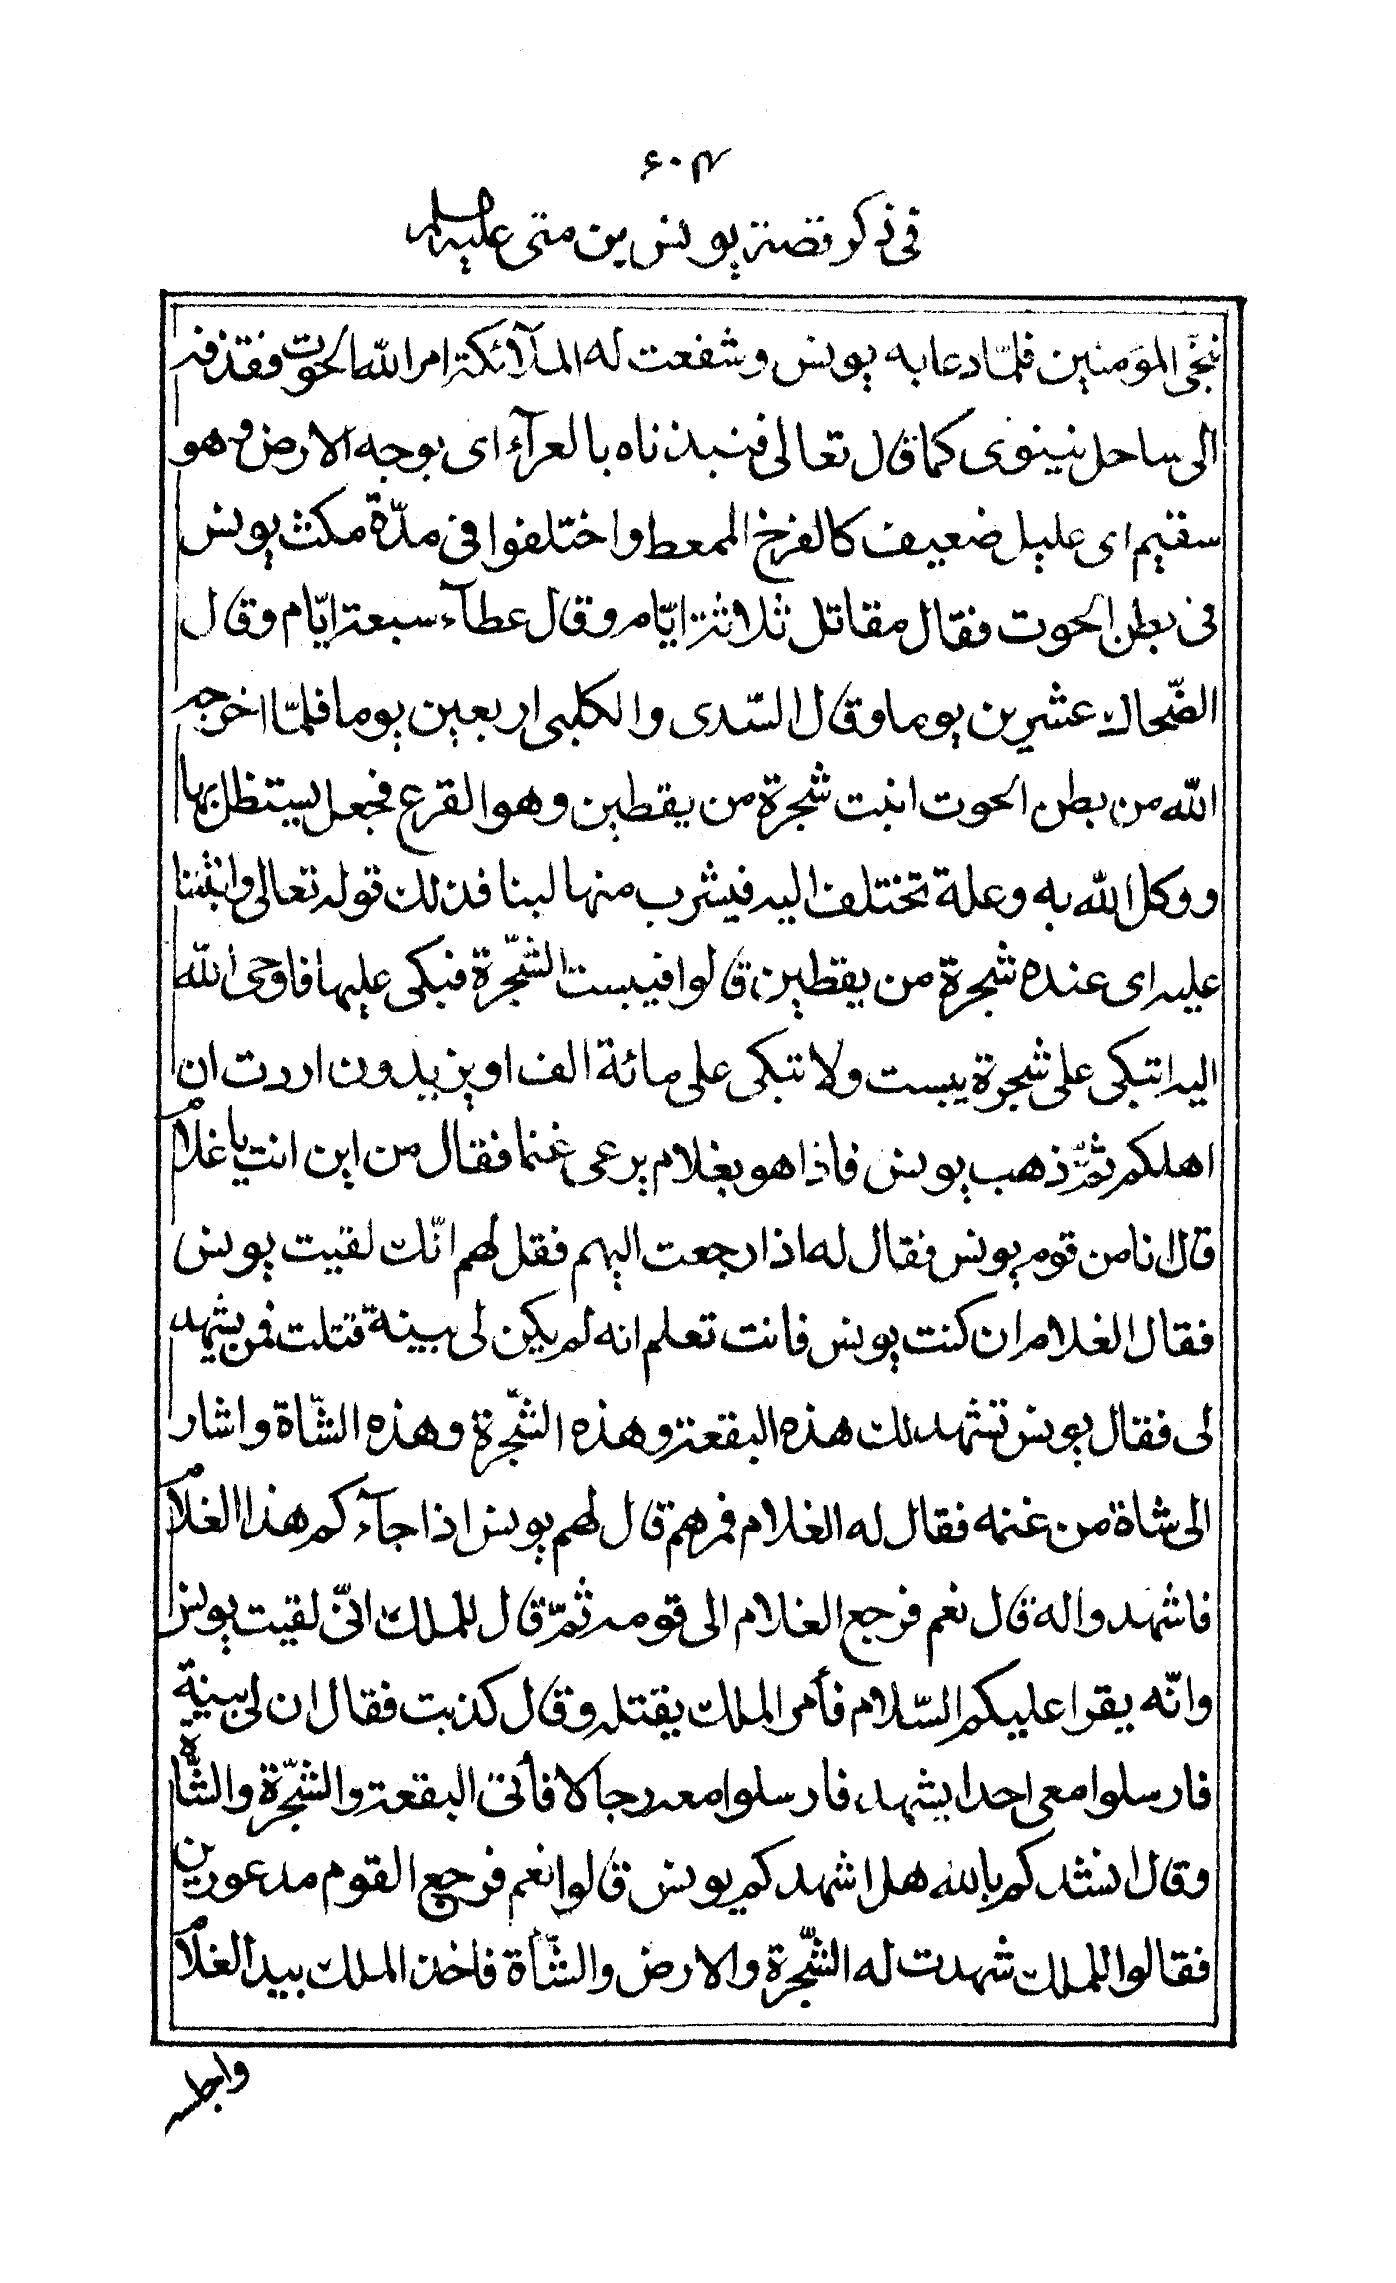 ٤٠٦
في ذكر قصة يونس بن متى عليه السلام
ننجى المؤمنين فلمّا دعا به يونس وشفعت له الملآئكة امر الله الحوت فقذفه
الى ساحل نينوى كما قال تعالى فنبذناه بالعرآء اى بوجه الارض وهو
سقيم اى عليل ضعيف كالفرخ الممعط واختلفوا فى مدّة مكث يونس
فى بطن الحوت فقال مقاتل ثلاثة ايّام وقال عطآء سبعة ايّام وقال
الضّحاك عشرين يوما وقال السّدى والكلبى اربعين يوما فلمّا اخرجه
الله من بطن الحوت انبت شجرة من يقطين وهو القرع فجعل يستظل بها
ووكل الله به وعلة تختلف اليه فيشرب منها لبنا فذلك قوله تعالى وانبتنا
عليه اى عنده شجرة من يقطين قالوا فيبست الشّجرة فبكى عليها فاوحى الله
اليه اتبكى على شجرة يبست ولا تبكى على مائة الف او يزيدون اردت ان
اهلكهم ثمّ ذهب يونس فاذا هو بغلام يرعى غنما فقال من اين انت يا غلام
قال انا من قوم يونس فقال له اذا رجعت اليهم فقل لهم انّك لقيت يونس
فقال الغلام ان كنت يونس فانت تعلم انه لم يكن لى بينة قتلت فمن يشهد
لى فقال يونس تشهد لك هذه البقعة وهذه الشّجرة وهذه الشّاة واشار
الى شاة من غنمه فقال له الغلام فمرهم قال لهم يونس اذا جآءكم هذا الغلام
فاشهدوا له قال نعم فرجع الغلام الى قومه ثمّ قال للملك انّى لقيت يونس
وانّه يقرا عليكم السّلام فأمر الملك بقتله وقال كذبت فقال ان لى بينة
فارسلوا معى احدا يشهد، فارسلوا معه رجالا فأتى البقعة والشّجرة والشّاة
وقال انشدكم بالله هل اشهدكم يونس قالوا نعم فرجع القوم مذعورين
فقالوا للملك شهدت له الشّجرة والارض والشّأة فاخذ الملك بيد الغلام
واجلسه